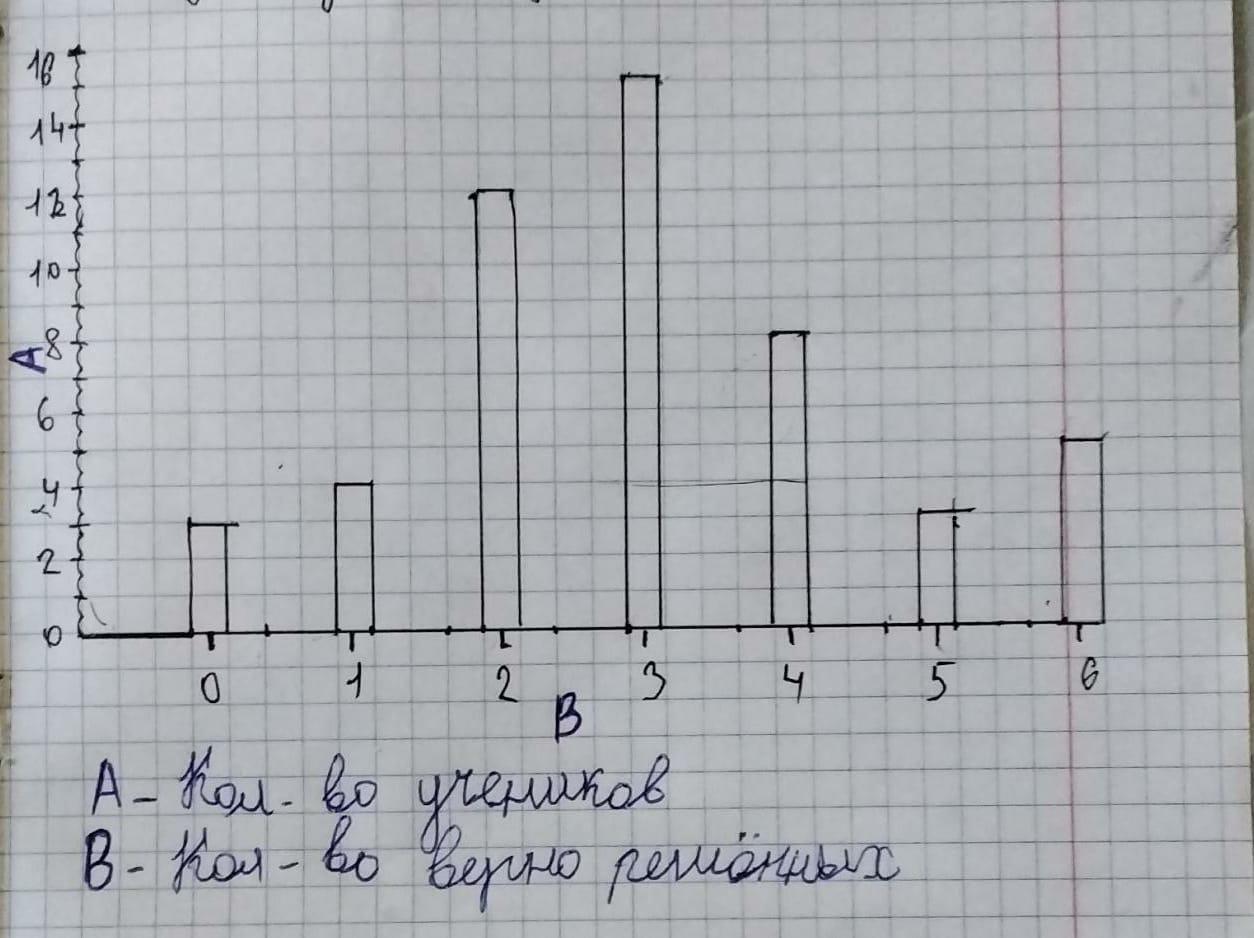 16
14
12
10
A 8
6
4
2
0
0 1 2 3 4 5 6
B
А - Кол-во учеников
В - Кол-во верно решённых